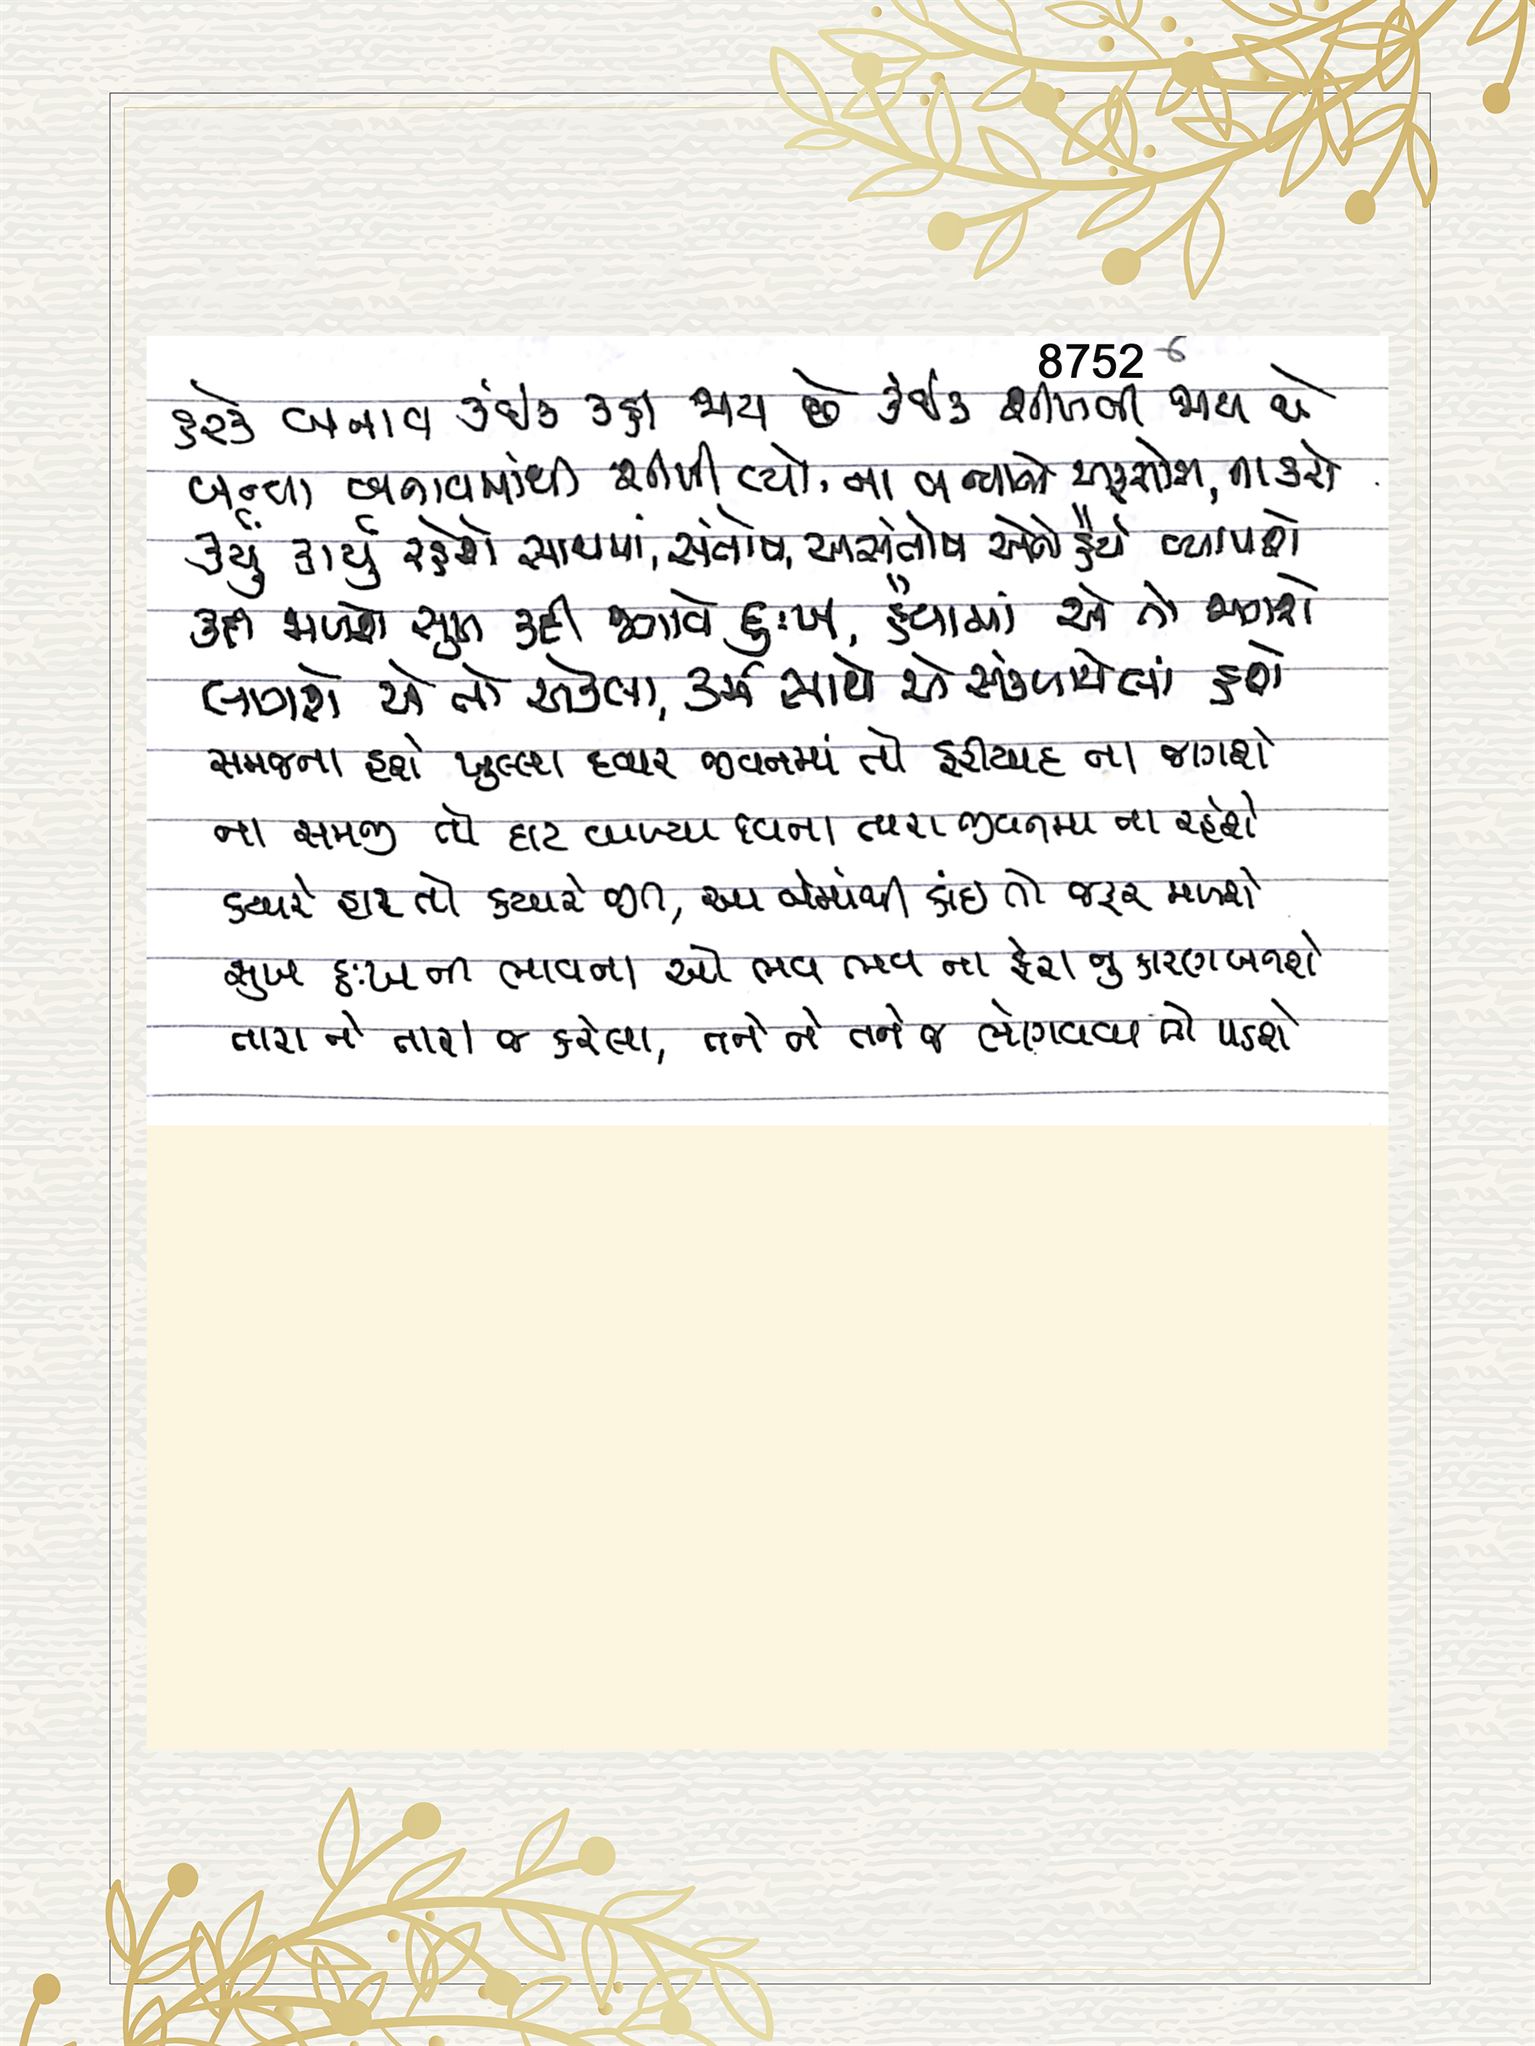 8752
હરેક બનાવ કંઈક કહી જાય છે કંઈક શીખવી જાય છે
બન્યા બનાવમાંથી શીખી લ્યો, ના બન્યાનો અફસોસ, ના કરો
કર્યું કાર્યું રહેશે સાથમાં, સંતોષ, અસંતોષ એને હૈયે વ્યાપશે
કદી મળશે સુખ કદી જગાવે દુઃખ, હૈયામાં એ તો જાગશે
લાગશે એ તો એકલા, કર્મ સાથે એ સંકળાયેલાં હશે
સમજના હશે ખુલ્લા દ્વાર જીવનમાં તો ફરીયાદ ના જાગશે
ના સમજી તો દાટ વાળ્યા વિના તારા જીવનમા ના રહેશે
ક્યારે હાર તો ક્યારે જીત, આ બેમાંથી કાંઇ તો જરૂર મળશે
સુખ દુઃખ ની ભાવના ઓ ભવ ભવ ના ફેરા નુ કારણ બનશે
તારા ને તારા જ કરેલા, તને ને તને જ ભોગવવા તો પડશે